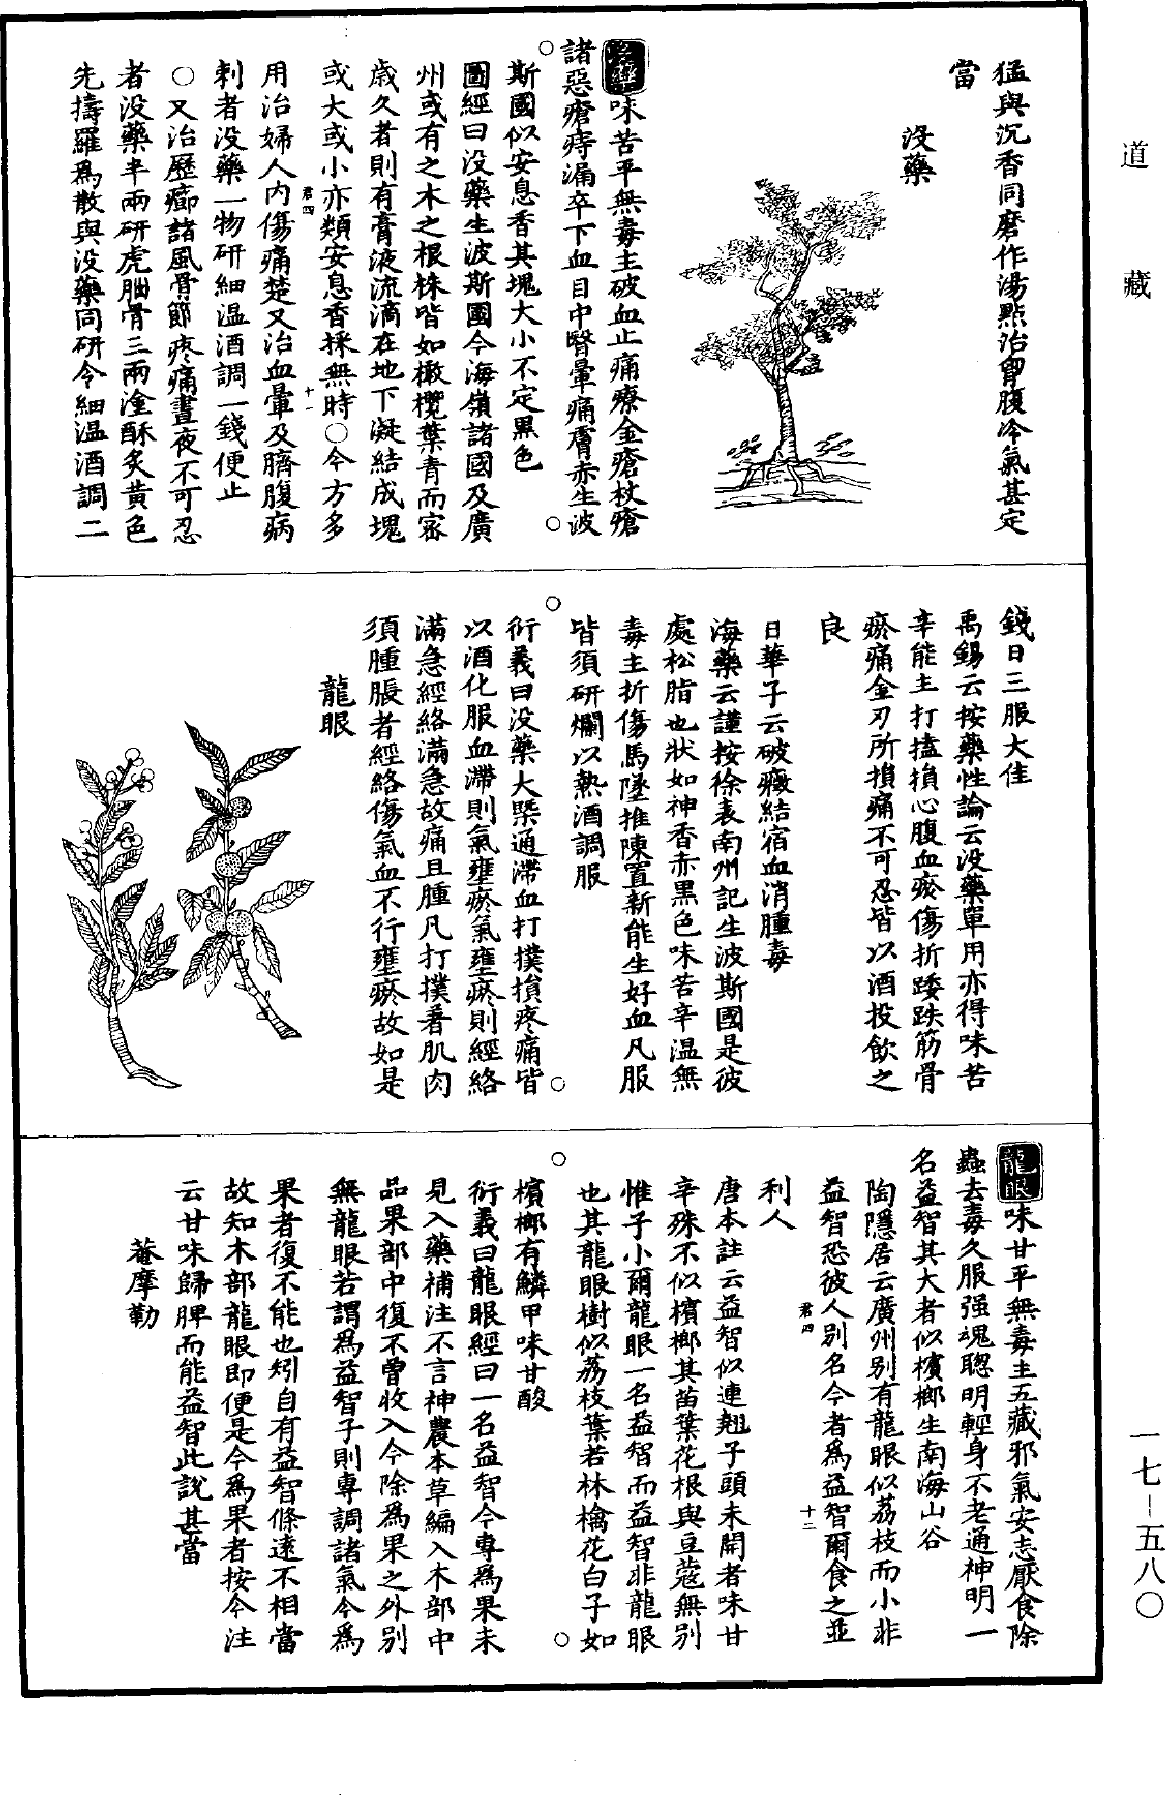 道藏
猛與沉香同磨作湯點治胷腹冷氣甚定
當
没藥
味苦平無毒主破血止痛療金瘡杖瘡
諸惡瘡痔漏卒下血目中瞖暈痛膚赤生波
斯國似安息香其塊大小不定黒色
圖經曰没藥生波斯國今海嶺諸國及廣
州或有之木之根株皆如橄欖葉青而密
歲久者則有膏液流滴在地下凝結成塊
或大或小亦類安息香採無時○今方多
君四
十一
用治婦人内傷痛楚又治血暈及臍腹㽲
刺者没藥一物研細温酒調一錢便止
○又治歷癤諸風骨節疼痛晝夜不可忍
者没藥半兩研虎䯊骨三兩塗酥炙黄色
先擣羅爲散與没藥同研令細温酒調二
錢日三服大佳
禹錫云按藥性論云没藥單用亦得味苦
辛能主打搕損心腹血瘀傷折踒跌筋骨
瘀痛金刃所損痛不可忍皆以酒投飲之
良
日華子云破癥結宿血消腫毒
海藥云謹按徐表南州記生波斯國是彼
處松脂也狀如神香赤黒色味苦辛温無
毒主折傷馬墜推陳置新能生好血凡服
皆須研爛以熱酒調服
衍義曰没藥大槩通滯血打撲損疼痛皆
以酒化服血滯則氣壅瘀氣壅瘀則經絡
滿急經絡滿急故痛且腫凡打撲著肌肉
須腫脹者經絡傷氣血不行壅瘀故如是
龍眼
龍眼味甘平無毒主五藏邪氣安志厭食除
蟲去毒久服强魂聦明輕身不老通神明一
名益智其大者似檳榔生南海山谷
陶隱居云廣州别有龍眼似荔枝而小非
益智恐彼人别名今者爲益智爾食之並
君四
十二
利人
唐本註云益智似連翹子頭未開者味甘
辛殊不似檳榔其苗葉花根與豆蔻無别
惟子小爾龍眼一名益智而益智非龍眼
也其龍眼樹似荔枝葉若林檎花白子如
檳榔有鱗甲味甘酸
衍義曰龍眼經曰一名益智今專爲果未
見入藥補注不言神農本草編入木部中
品果部中復不曾收入今除爲果之外别
無龍眼若謂爲益智子則專調諸氣今爲
果者復不能也矧自有益智條遠不相當
故知木部龍眼即便是今爲果者按今注
云甘味歸脾而能益智此說甚當
菴摩勒
一七-五八〇